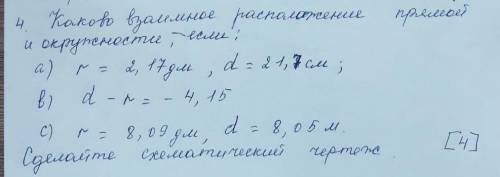 4. Каково взаимное расположение прямой
и окружности, если:
а) r = 2,17дм, d = 21,7см;
в) d - r = - 4,15
с) r = 8,09дм, d = 8,05 м.
Сделайте схематический чертеж. [4]